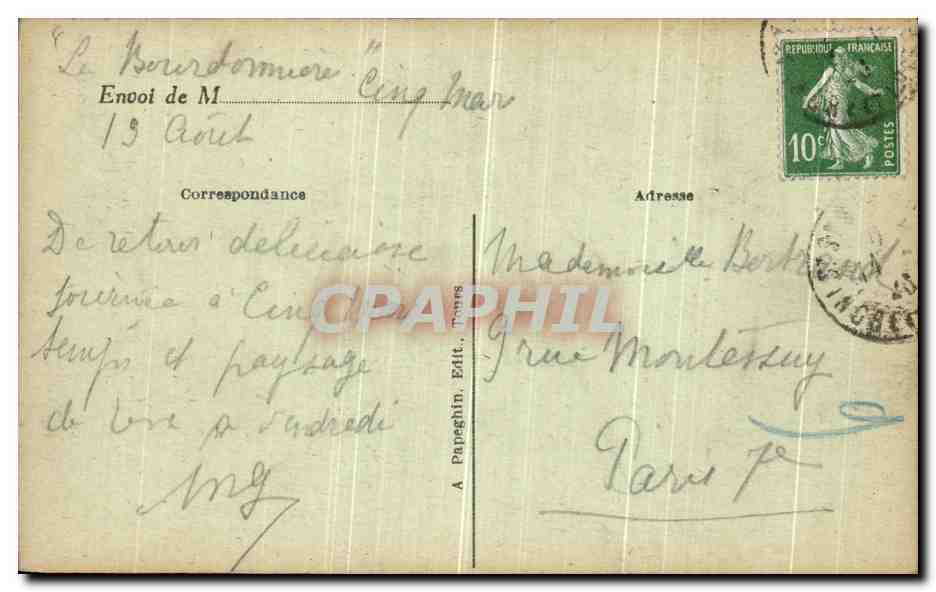 "La Bourdonnière"
Envoi de M
Cinq Mars
19 Août
REPUBLIQUE FRANÇAISE
10c
POSTES
Correspondance
Adresse
De retour délicieuse
tournée à Cinq Mars
temps et paysage
de rêve à vendredi
Mademoiselle Bertrand
9 rue Montessuy
Paris 7e
A Papeghin, Edit., Tours
CPAPHIL